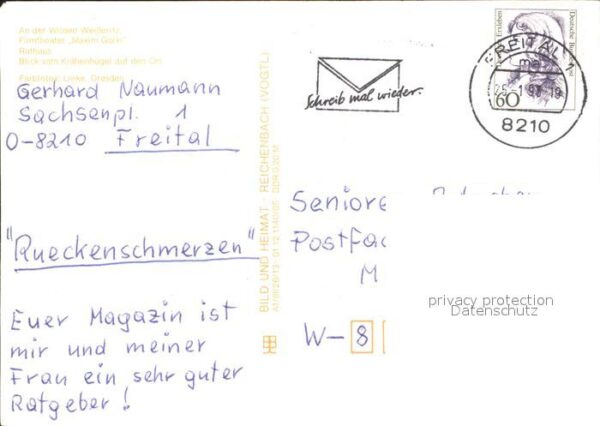 An der Wilden Weißeritz,
Filmtheater „Maxim Gorki"
Rathaus
Blick vom Krähenhügel auf den Ort
Farbfotos: Lieke, Dresden
Gerhard Naumann
Sachsenpl. 1
O-8210 Freital
"Rueckenschmerzen"
Euer Magazin ist
mir und meiner
Frau ein sehr guter
Ratgeber!
BILD UND HEIMAT · REICHENBACH (VOGTL)
DDR 0,20 M
Schreib mal wieder.
Deutsche Bundespost
60
FREITAL 1
8210
Seniore
Postfac
M
W-8
privacy protection
Datenschutz